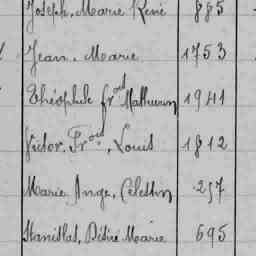 Joseph, Marie René 885
Jean, Marie 1753
Théophile frois Mathurin 1941
Victor, Frois, Louis 1812
Marie Ange, Célestin 257
Stanislas, Désiré Marie 695